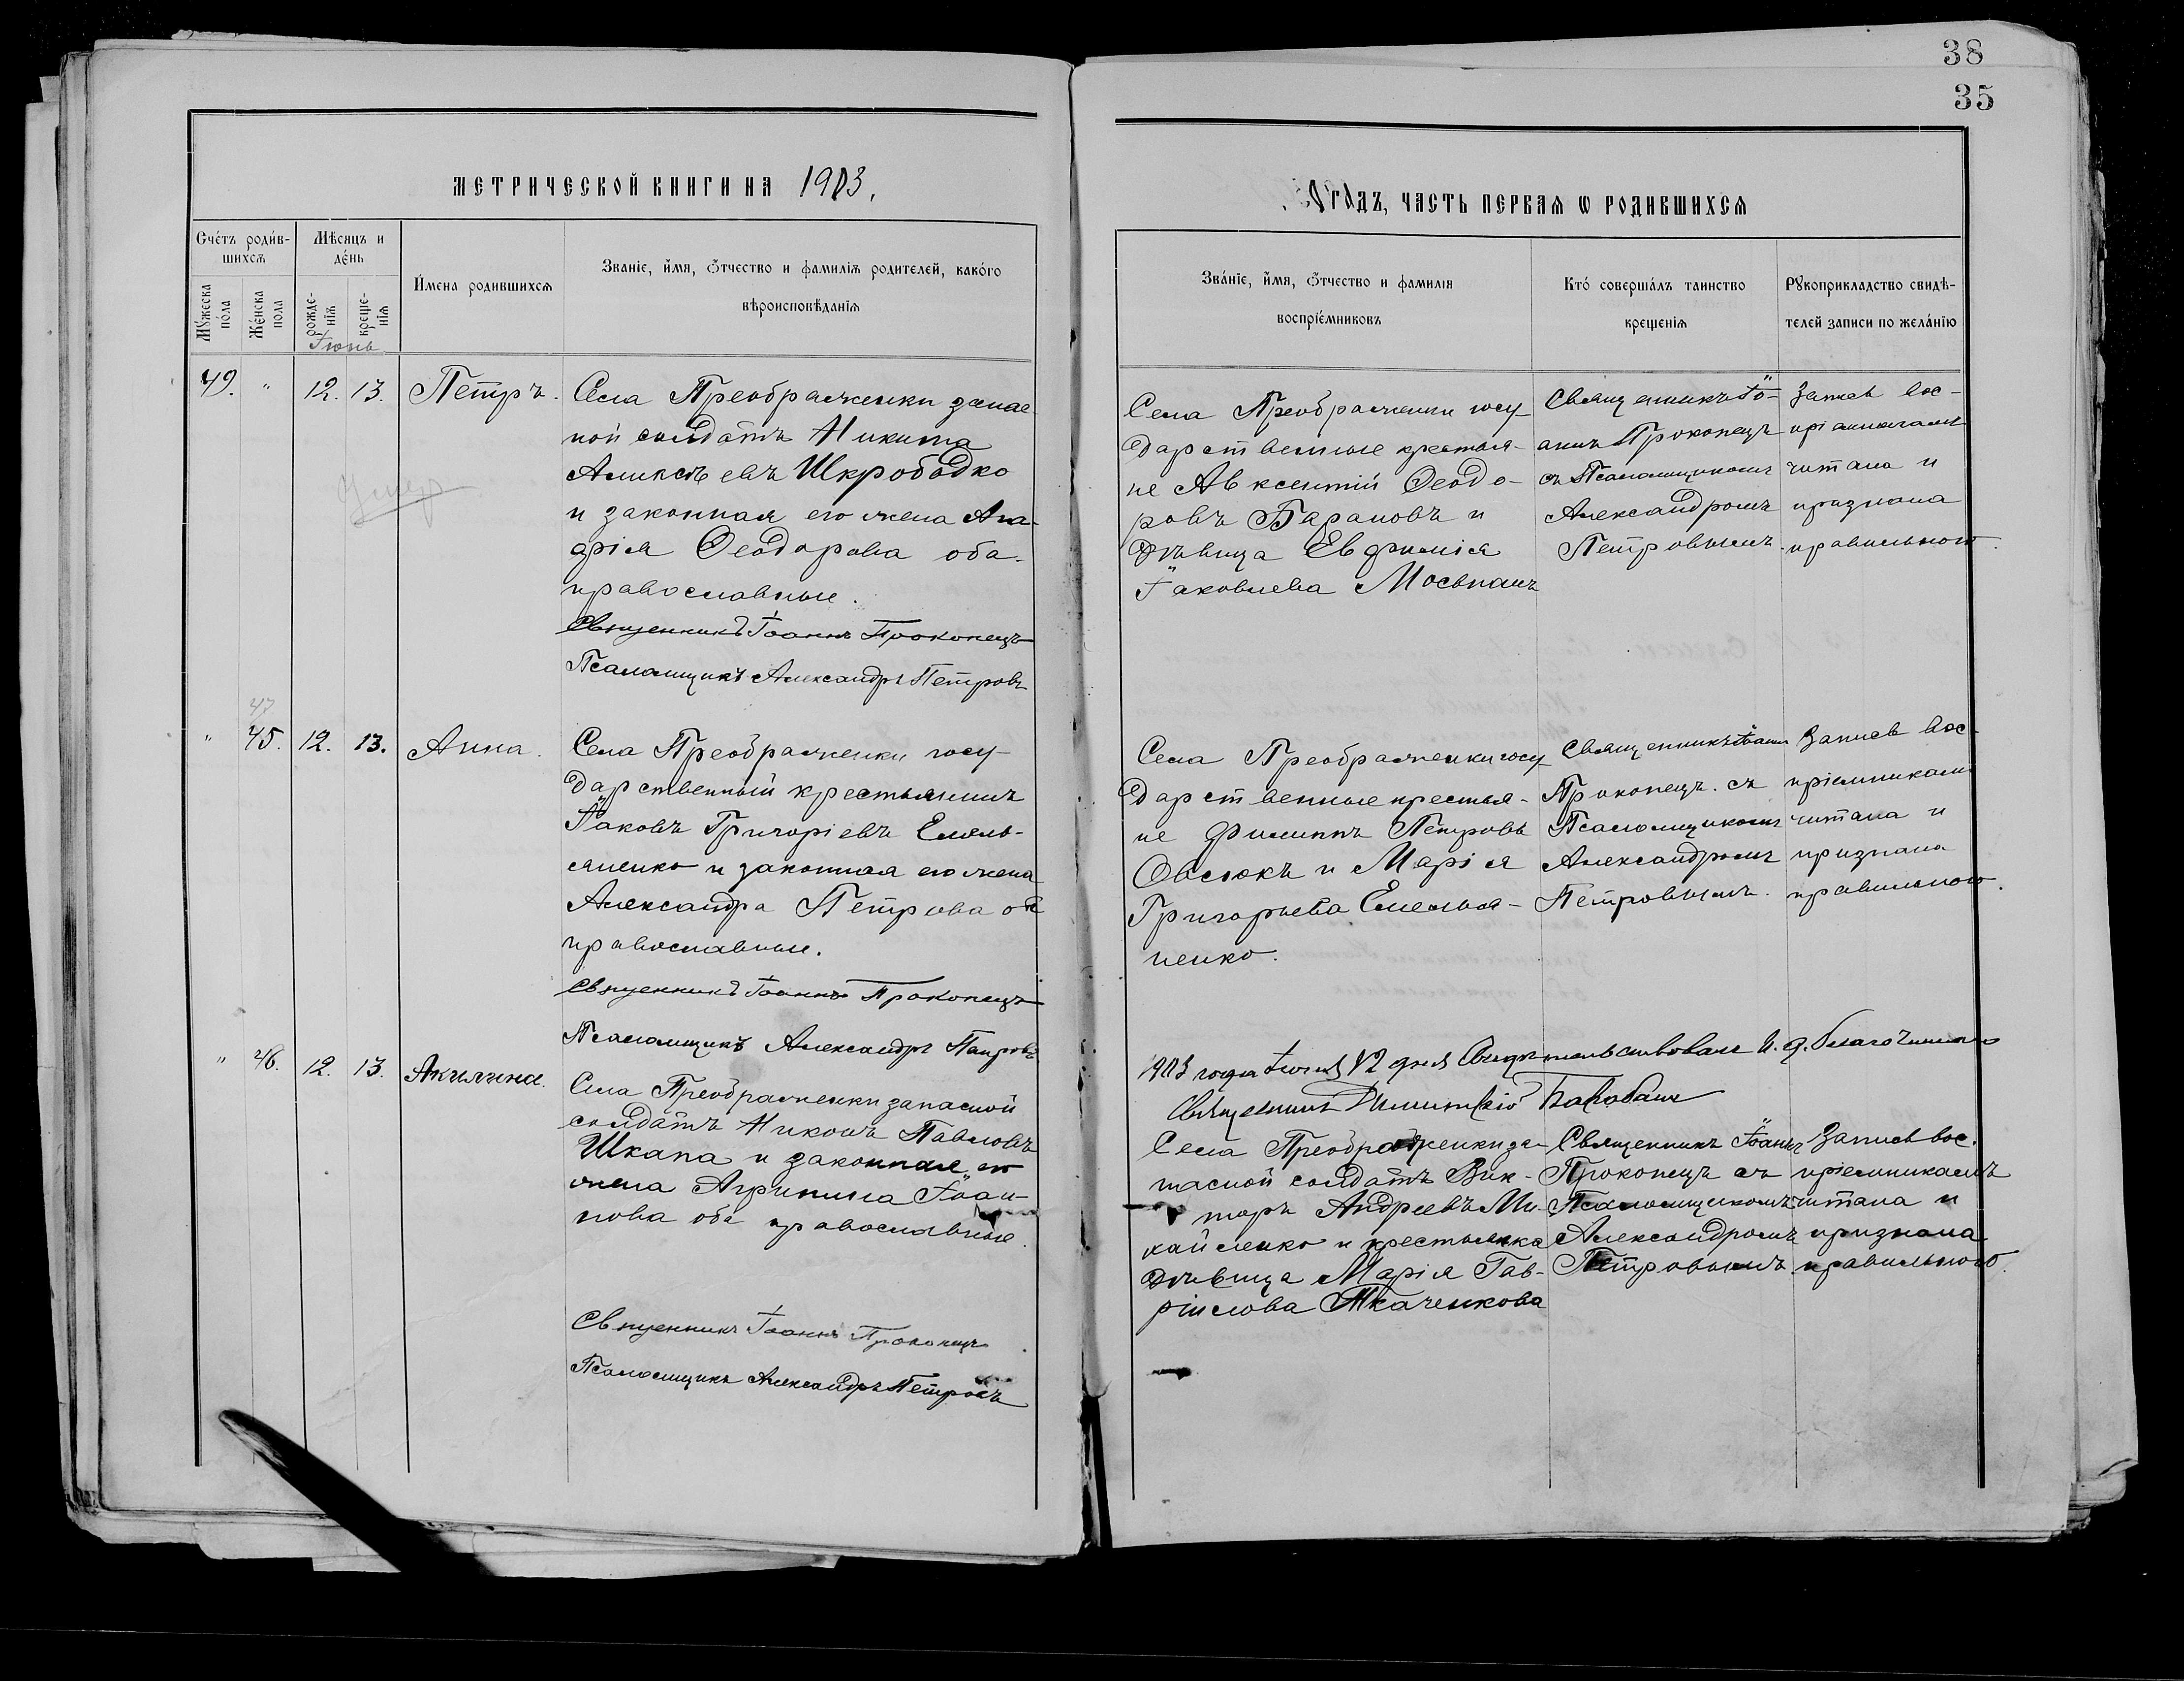 38
35
МЕТРИЧЕСКОЙ КНИГИ НА 1913.
ГОДЪ, ЧАСТЬ ПЕРВАЯ Ѡ РОДИВШИХСЯ
Счетъ родившихся
Мѣсяцъ и день
Имена родившихся
Званіе, имя, отчество и фамилія родителей, какого вѣроисповѣданія
Мужеска пола
Женска пола
рожденія
крещенія
Званіе, имя, отчество и фамилія воспріемниковъ
Кто совершалъ таинство крещенія
Рукоприкладство свидѣтелей записи по желанію
Іюнь
49. " 12. 13. Петръ.
Умер
Села Преображенки запас
ной солдатъ Никита
Алексѣевъ Шкрободко
и законная его жена
Ѳеодорова оба
православные.
Священникъ Іоаннъ Прокопецъ
Псаломщикъ Александръ Петровъ
Села Преображенки госу
дарственные крестья-
не Авксентій Ѳеодо-
ровъ Барановъ и
дѣвица Евфимія
Іаковлева Мосьпанъ
Священникъ Іо-
аннъ Прокопецъ
съ Псаломщикомъ
Александромъ
Петровымъ.
Запись вос-
пріемниками
читана и
признана
правильною.
47
" 45. 12. 13. Анна.
Села Преображенки госу-
дарственный крестьянинъ
Іаковъ Григоріевъ Емель-
яненко и законная его жена
Александра Петрова оба
православные.
Священникъ Іоаннъ Прокопецъ
Псаломщикъ Александръ Петровъ
Села Преображенки госу
дарственные крестья-
не Филиппъ Петровъ
Овсюкъ и Марія
Григорьева Емелья-
ненко.
Священникъ Іоаннъ
Прокопецъ. съ
Псаломщикомъ
Александромъ
Петровымъ.
Запись вос-
пріемниками
читана и
признана
правильною.
1913 года Іюня 12 дня Свидѣтельствовалъ И. д. Благочиннаго
Священникъ Балабанъ
" 46. 12. 13. Акилина.
Села Преображенки запасной
солдатъ Никонъ Павловъ
Шкапа и законная его
жена Агрипина Іоан-
нова оба православные.
Священникъ Іоаннъ Прокопецъ
Псаломщикъ Александръ Петровъ
Села Преображенки за-
пасной солдатъ Вик-
торъ Андреевъ Ми-
хайленко и крестьянка
дѣвица Марія Гав-
ріилова Ткаченкова
Священникъ Іоаннъ
Прокопецъ съ
Псаломщикомъ
Александромъ
Петровымъ.
Запись вос-
пріемникамъ
читана и
признана
правильною.